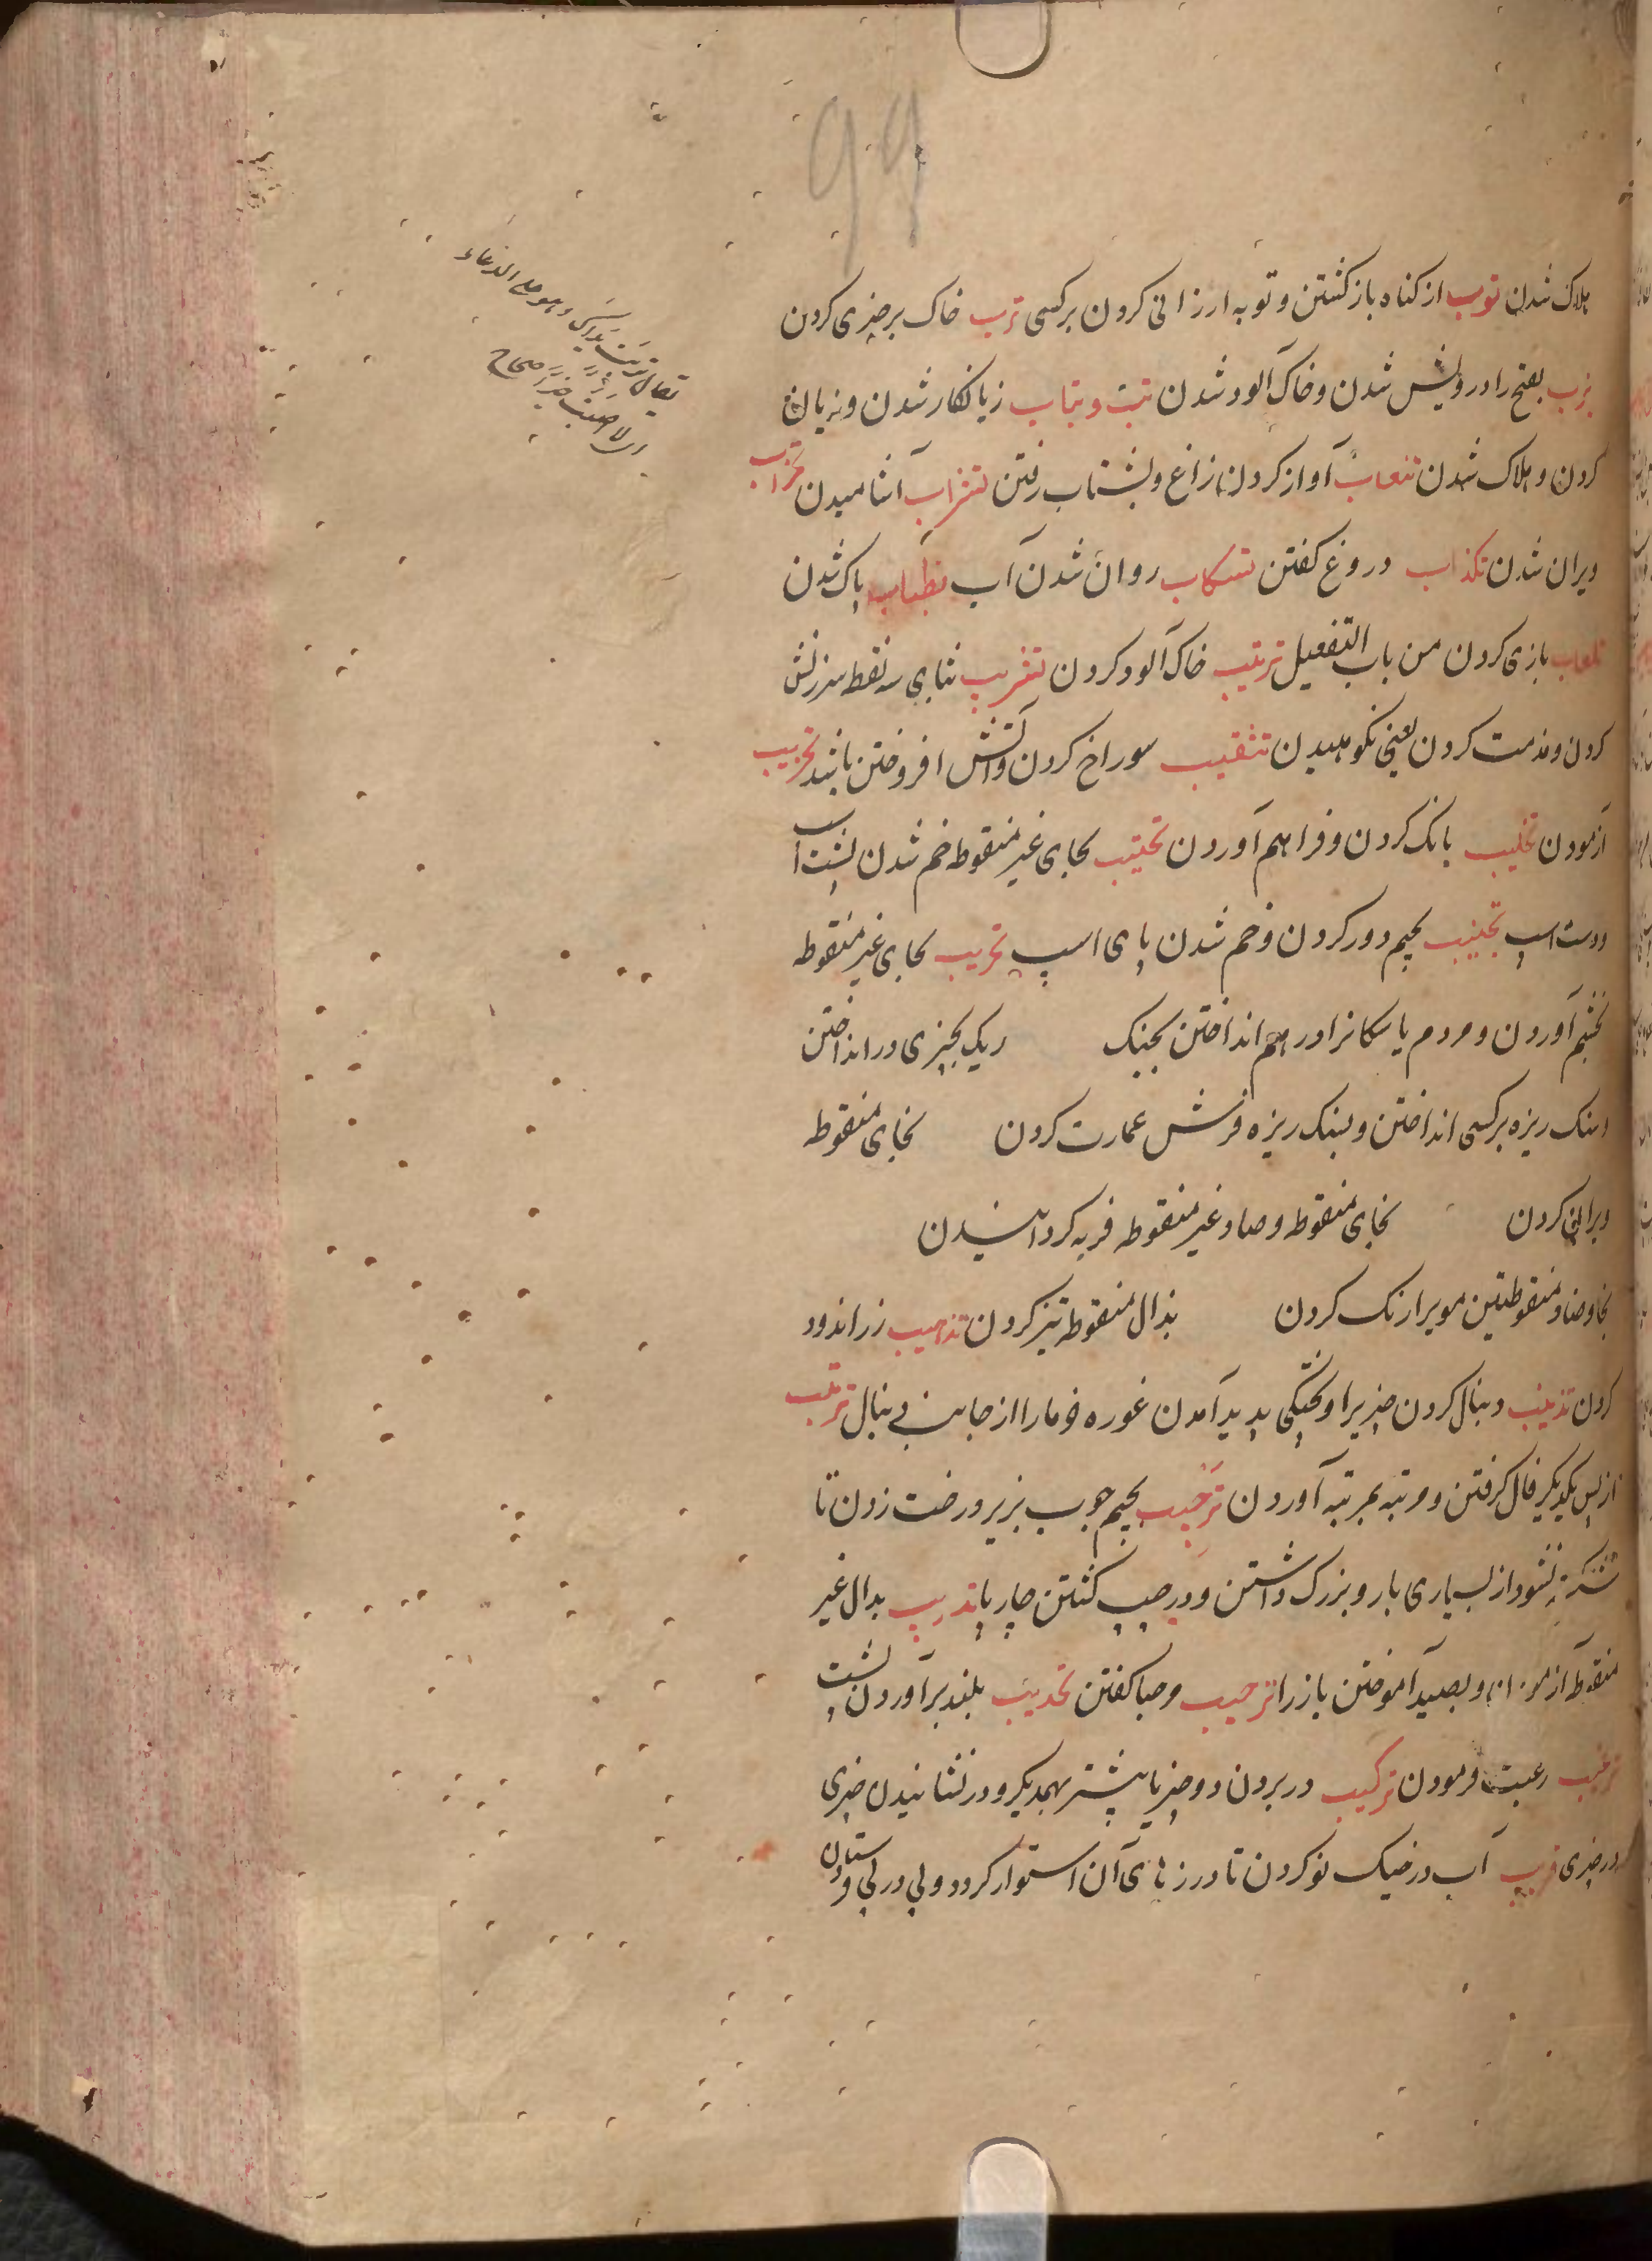 هلاک شدن توب از کناه باز کشتن و توبه ارزانی کرون بر کسی ترب خاک بر چیزی کردن
ترب بفتح را درویش شدن و خاک آلود شدن تبت و تباب زیانکار شدن و زیان
کردن و هلاک شدن تنعاب آواز کردن زاغ و بشتاب رفتن تشراب آشامیدن تخراب
ویران شدن تکذاب دروغ کفتن تسکاب روان شدن آب تطیاب پاک شدن
تلعاب بازی کردن من باب التفعیل تتریب خاک آلود کردن تثریب بثای سه نقطه سرزنش
کردن و مذمت کردن یعنی نکوهیدن تثقیب سوراخ کردن و آتش افروختن باشد تجریب
آزمودن تجلیب بانک کردن و فراهم آوردن تحنیب بحای غیر منقوطه خم شدن پشت اسب
و دست اسپ تجنیب بجیم دور کردن و خم شدن پای اسپ تحریب بحای غیر منقوطه
بخشم آوردن و مردم یا سکانرا در هم انداختن بجنک ریک بچیزی در انداختن
و سنک ریزه بر کسی انداختن و بسنک ریزه فرش عمارت کردن بخای منقوطه
ویرانی کردن بخای منقوطه و صاد غیر منقوطه فربه کردانیدن
بخا و ضاد منقوطتین مویرا رنک کردن بذال منقوطه تیز کردن تذهیب زر اندود
کردن تذنیب دنبال کردن چیزیرا و پختکی پدید آمدن غوره خرما را از جانب دنبال ترتیب
از پس یکدیکر فال کرفتن و مرتبه بمرتبه آوردن ترجیب بجیم چوب بزیر درخت زدن تا
شکسته نشود از بسیاری بار و بزرک داشتن و در جیب کشتن چارپا تدریب بدال غیر
منقوطه آزمودن و بصید آموختن باز را ترحیب مرحبا کفتن تحدیب بلند بر آوردن پشت
ترغیب رغبت فرمودن ترکیب در بردن دو چیز یا بیشتر بهمدیکر و در نشانیدن چیزی
در چیزی آب در خیک نو کردن تا درزهای آن استوار کردد و پی در پی
یقال تربت یداک وهو علی الدعاء
ای لا اصبت خیرا صحاح